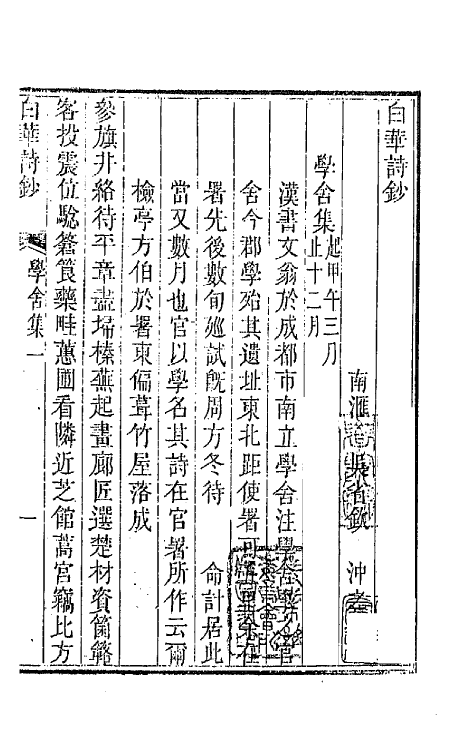 白華詩鈔
南滙吳省欽沖之
學舍集起甲午三月止十二月
漢書文翁於成都市南立學舍注學舍學之官
舍今郡學殆其遺址東北距使署可
署先後數旬廵試旣周方冬待 命計居此
當又數月也官以學名其詩在官署所作云爾
檢亭方伯於署東偏葺竹屋落成
參旗井絡待平章盡埽榛蕪起畫廊匠選楚材資箘簵
客投震位駐簦簑藥畦蕙圃看隣近芝館蒿宮竊比方
白華詩鈔 學舍集一 一